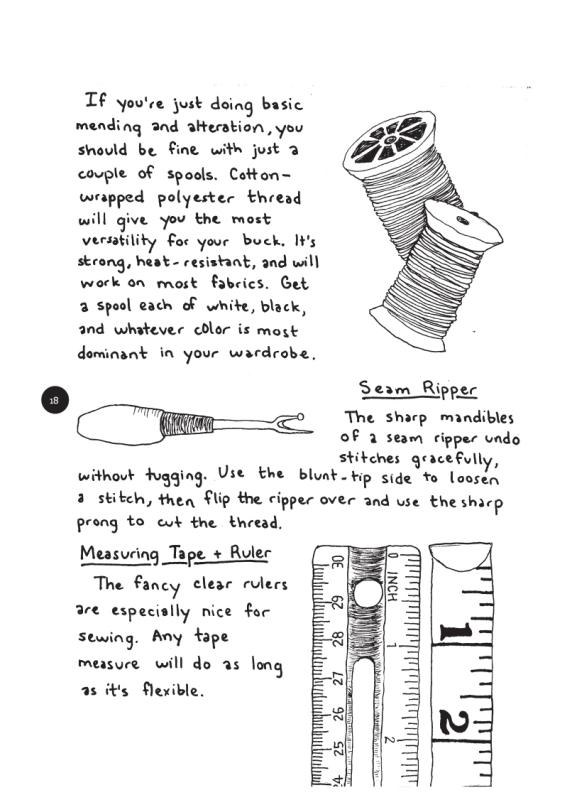 If you're just doing basic
mending and alteration, you
should be fine with just a
couple of spools. Cotton-
wrapped polyester thread
will give you the most
versatility for your buck. It's
strong, heat-resistant, and will
work on most fabrics. Get
a spool each of white, black,
and whatever color is most
dominant in your wardrobe.
18
Seam Ripper
The sharp mandibles
of a seam ripper undo
stitches gracefully,
without tugging. Use the blunt-tip side to loosen
a stitch, then flip the ripper over and use the sharp
prong to cut the thread.
Measuring Tape + Ruler
The fancy clear rulers
are especially nice for
sewing. Any tape
measure will do as long
as it's flexible.
30
29
28
27
26
25
24
0 INCH
1
2
1
2